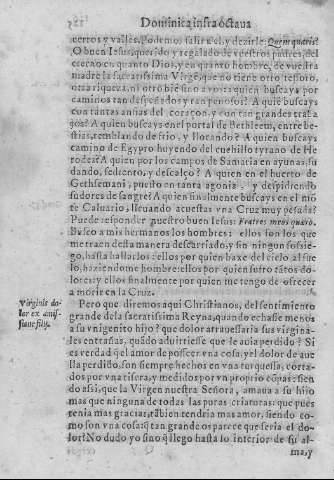 Dominica infra octaua
cerros y valles, podemos salir a el, y dezirle: Quem quæris?
O buen Iesus, querido y regalado de vuestros padres, del
eterno en quanto Dios, y en quanto hombre, de vuestra
madre la sacratissima Virgẽ, que no tiene otro tesoro,
otra riqueza, ni otro biẽ sino a vos: a quien buscays por
caminos tan despeñados y tan penosos? A quiẽ buscays
con tantas ansias del coraçon, y con tan grandes traba
jos? A quien buscays en el portal de Bethleem, entre be-
stias, temblando de frio, y llorando? A quien buscays
camino de Egypto huyendo del cuchillo tyrano de He
rodes? A quien por los campos de Samaria en ayunas, su
dando, sediento, y descalço? A quien en el huerto de
Gethsemani, puesto en tanta agonia, y despidiendo
sudores de sangre? A quien finalmente buscays en el mõ
te Caluario, lleuando acuestas vna Cruz muy pesada?
Puede responder nuestro buen Iesus: Fratres meos quæro.
Busco a mis hermanos los hombres: ellos son los que
me traen desta manera descarriado, y sin ningun sossie-
go, hasta hallarlos: ellos por quien baxe del cielo al sue
lo, haziendome hombre: ellos por quien sufro tãtos do-
lores: y ellos finalmente por quien me tengo de ofrecer
a morir en la Cruz.
Virginis do-
lor ex amis-
sione filij.
Pero que diremos aqui Christianos, del sentimiento
grande de la sacratissima Reyna, quando echasse menos
a su vnigenito hijo? que dolor atrauessaria sus virgina-
les entrañas, quãdo aduirtiesse que le auia perdido? Si
es verdad q̃ el amor de posseer vna cosa, y el dolor de aue
lla perdido, son siempre hechos en vna turquesa, corta-
dos por vna tisera, y medidos por vn proprio cõpas: sien
do assi, que la Virgen nuestra Señora, amaua a su hijo
mas que ninguna de todas las puras criaturas: que pues
tenia mas gracias, tãbien tendria mas amor, siendo co-
mo son vna cosa: q̃ tan grande os parece que seria el do-
lor? No dudo yo sino q̃ llego hasta lo interior de su al-
ma, y